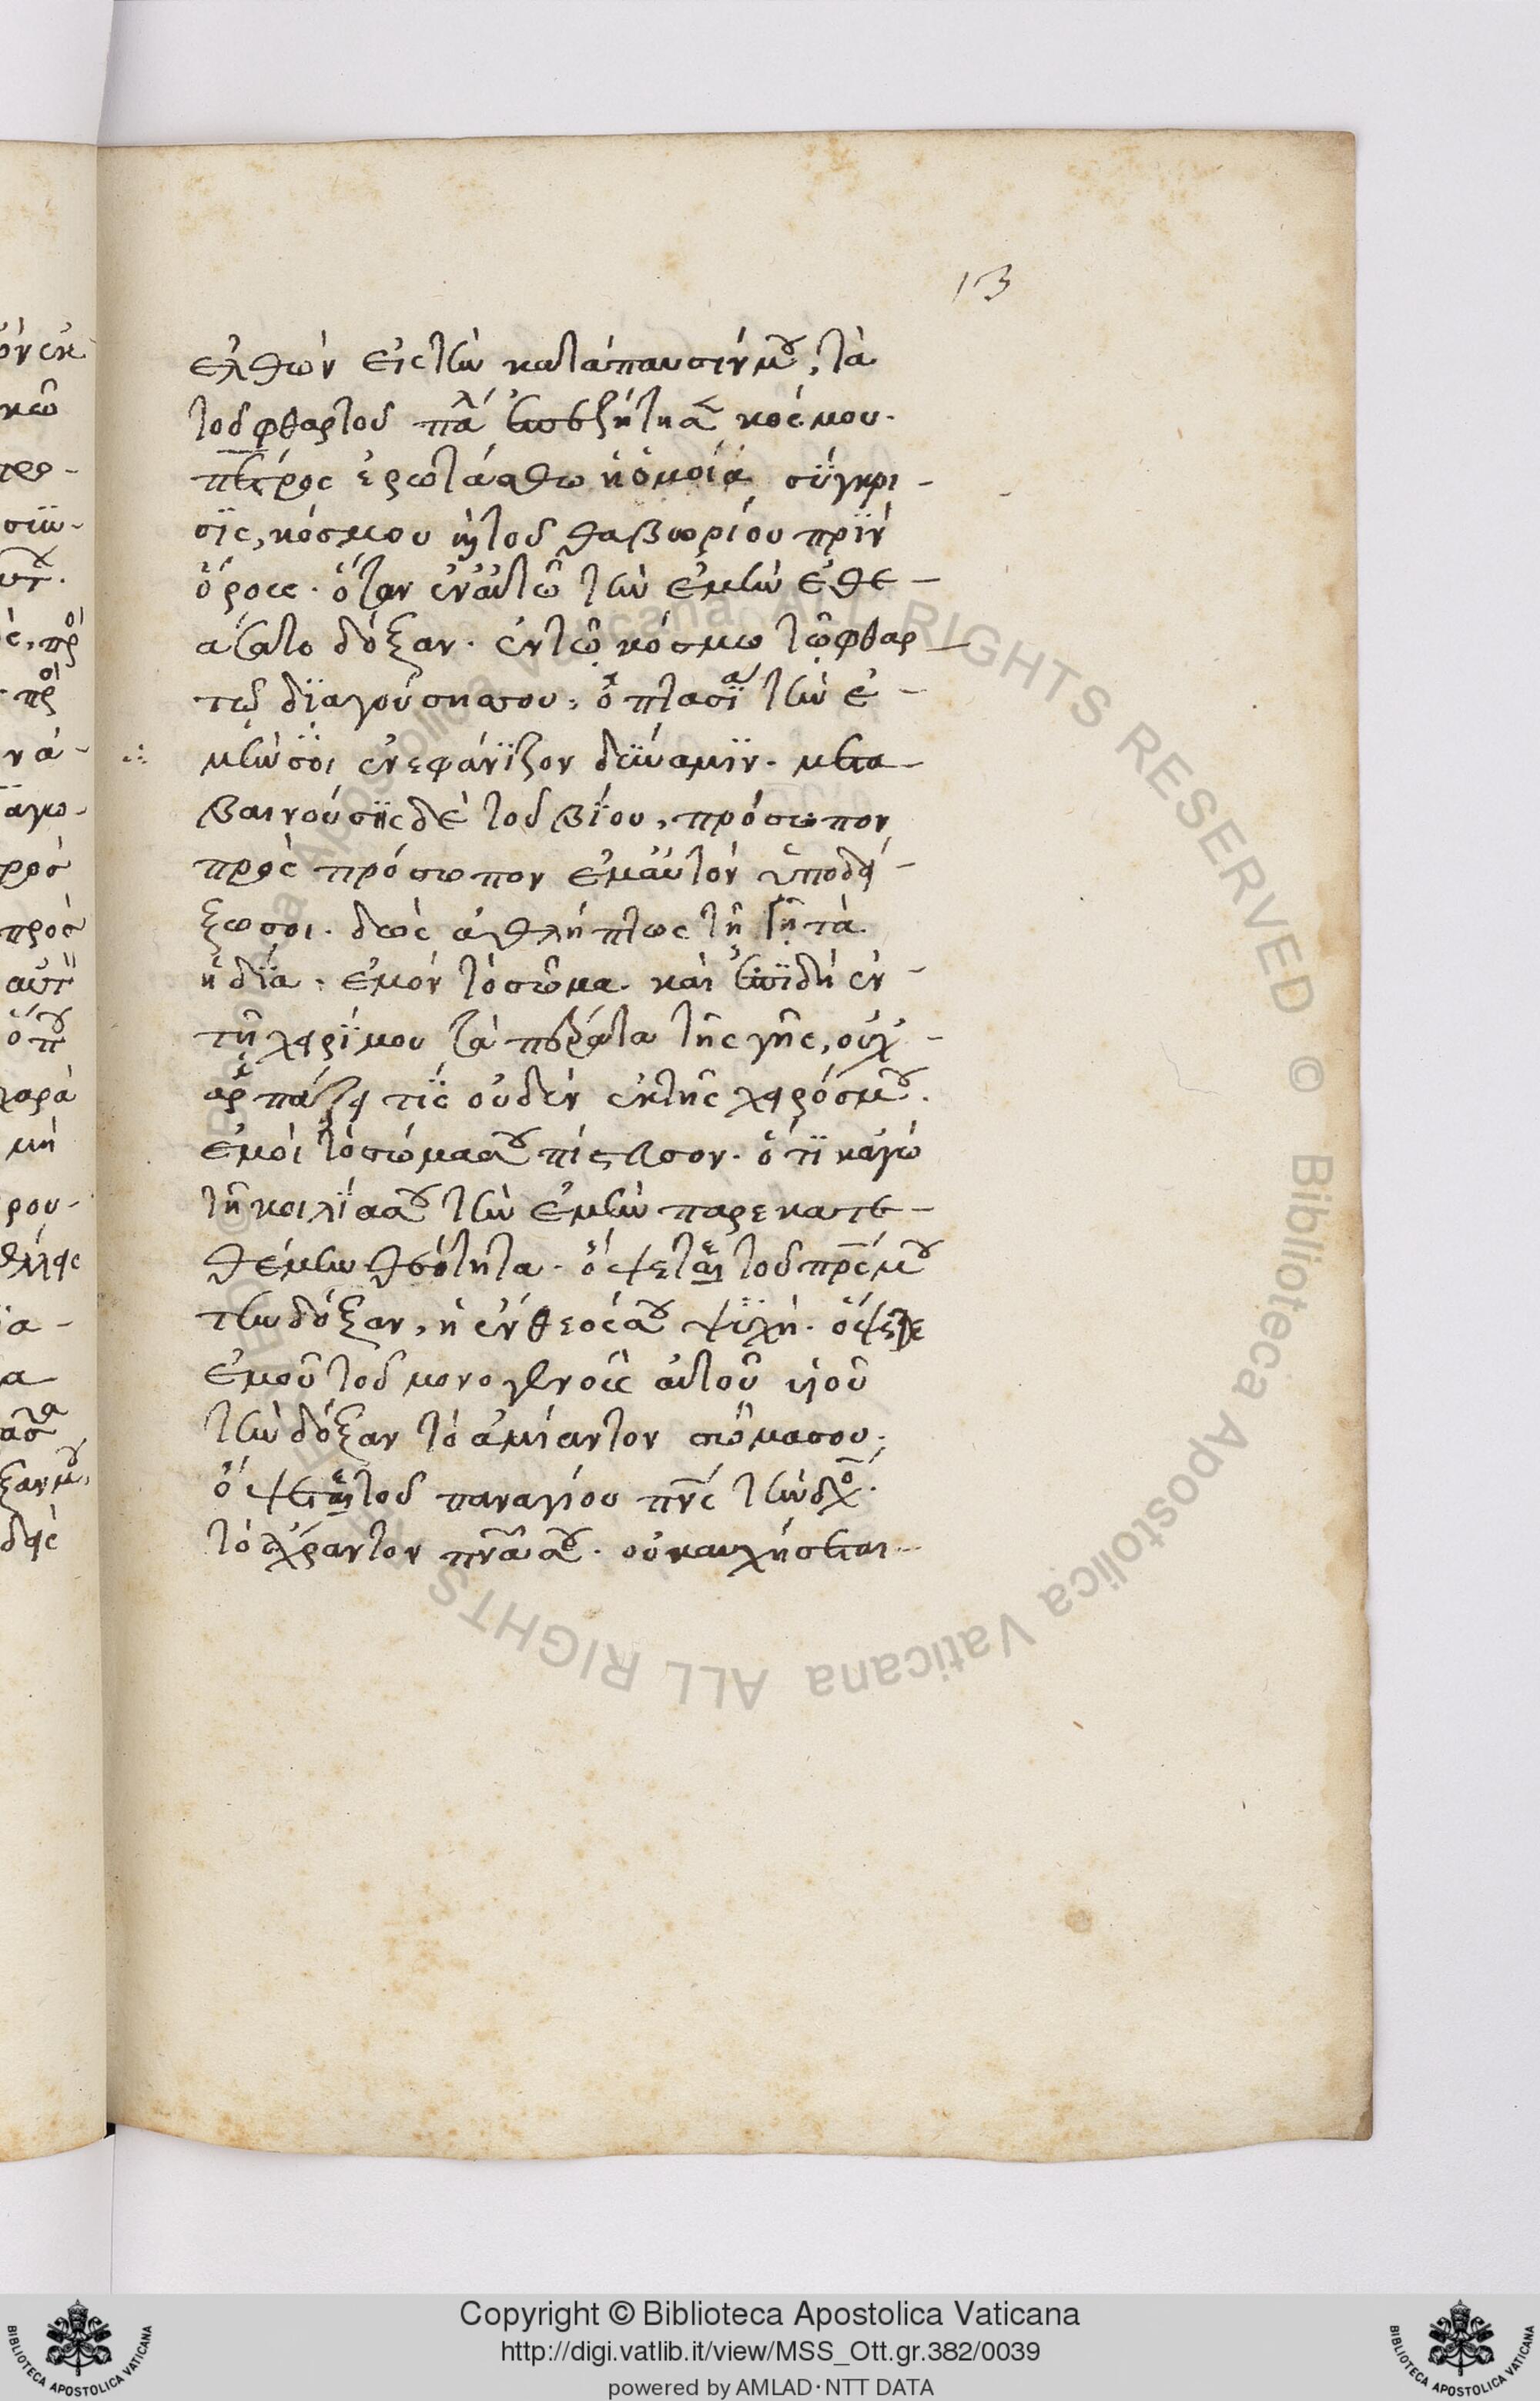 13
ἐλθὼν εἰς τὴν κατάπαυσίν μου, τὰ
τοῦ φθαρτοῦ πάλ ἐπιζητήσ κόσμου.
πέτρος ἐρωτάσθω ἡ ὁμοία σύγκρι-
σϊς, κόσμου κὶ τοῦ θαβωρίου πρὶν
ὄρους. ὅταν ἐν αὐτῷ τὴν ἐμὴν ἐθε-
άσατο δόξαν. ἐν τῷ κόσμω τῷ φθαρ-
τῷ δϊαγούση σου, ὀπτασία τὴν ἐ-
μήν σοι ἐνεφάνϊζον δύναμϊν. μετα-
βαινούσης δὲ τοῦ βίου, πρόσωπον
πρὸς πρόσωπον ἐμαυτὸν ὑποδεί-
ξω σοι. δὸς ἀθλήπτως τῇ γῇ τὰ
ἴδϊα. ἐμὸν τὸ σῶμα. καὶ ἐπϊδὴ ἐν
τῇ χειρί μου τὰ πέρατα τῆς γῆς, οὐχ
ἁρπάζει τίς οὐδὲν ἐκ τῆς χειρός μου.
ἐμοὶ τὸ σῶμα σου πίστευσον. ὅτϊ κἀγὼ
τῇ κοιλίᾳ σου τὴν ἐμὴν παρεκατε-
θέμην θεότητα. ὄψεται τοῦ πρς μου
τὴν δόξαν, ἡ ἔνθεός σου ψϋχή. ὄψεται
ἐμοῦ τοῦ μονογενοῦς αὐτοῦ υἱοῦ
τὴν δόξαν τὸ ἀμίαντον σῶμα σου.
ὄψεται τοῦ παναγίου πνς τὴν δόξ.
τὸ ἄχραντον πνα σου. οὐ καυχήσεται
Copyright © Biblioteca Apostolica Vaticana
http://digi.vatlib.it/view/MSS_Ott.gr.382/0039
powered by AMLAD·NTT DATA